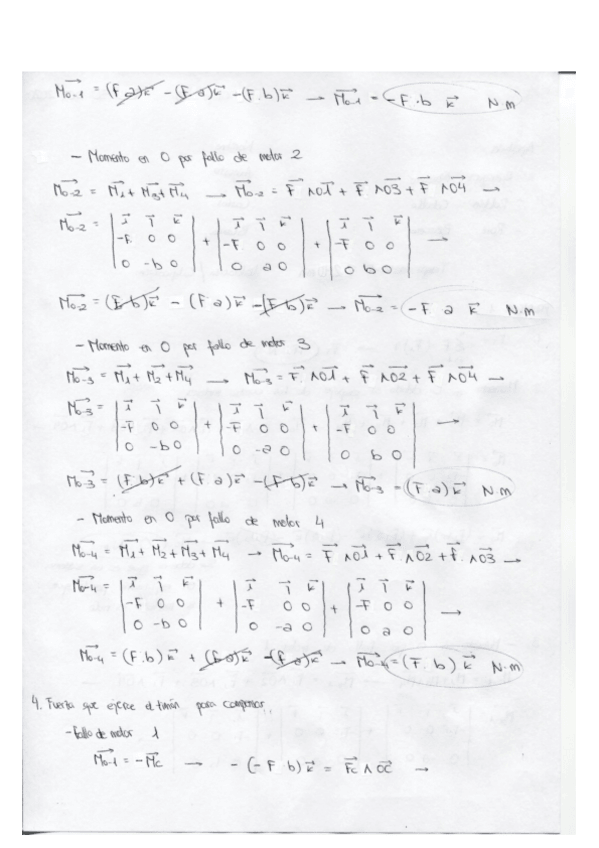 M⃗o-1 = (F.a)k⃗ - (F.a)k⃗ - (F.b)k⃗ → M⃗o-1 = -F.b k⃗ N.m
- Momento en O por fallo de motor 2
M⃗o-2 = M⃗1 + M⃗3 + M⃗4 → M⃗o-2 = F⃗ ∧ O⃗1 + F⃗ ∧ O⃗3 + F⃗ ∧ O⃗4 →
M⃗o-2 = | i⃗ j⃗ k⃗ | + | i⃗ j⃗ k⃗ | + | i⃗ j⃗ k⃗ |
| -F 0 0 | | -F 0 0 | | -F 0 0 | →
| 0 -b 0 | | 0 a 0 | | 0 b 0 |
M⃗o-2 = (F.b)k⃗ - (F.a)k⃗ - (F.b)k⃗ → M⃗o-2 = -F. a k⃗ N.m
- Momento en O por fallo de motor 3
M⃗o-3 = M⃗1 + M⃗2 + M⃗4 → M⃗o-3 = F⃗. ∧ O⃗1 + F⃗ ∧ O⃗2 + F⃗ ∧ O⃗4 →
M⃗o-3 = | i⃗ j⃗ k⃗ | + | i⃗ j⃗ k⃗ | + | i⃗ j⃗ k⃗ |
| -F 0 0 | | -F 0 0 | | -F 0 0 | →
| 0 -b 0 | | 0 -a 0 | | 0 b 0 |
M⃗o-3 = (F.b)k⃗ + (F.a)k⃗ - (F.b)k⃗ → M⃗o-3 = (F.a)k⃗ N.m
- Momento en O por fallo de motor 4
M⃗o-4 = M⃗1 + M⃗2 + M⃗3 + M⃗4 → M⃗o-4 = F⃗ ∧ O⃗1 + F⃗. ∧ O⃗2 + F⃗. ∧ O⃗3 →
M⃗o-4 = | i⃗ j⃗ k⃗ | + | i⃗ j⃗ k⃗ | + | i⃗ j⃗ k⃗ |
| -F 0 0 | | -F 0 0 | | -F 0 0 | →
| 0 -b 0 | | 0 -a 0 | | 0 a 0 |
M⃗o-4 = (F.b)k⃗ + (F.a)k⃗ - (F.a)k⃗ → M⃗o-4 = (F.b)k⃗ N.m
4. Fuerza que ejerce el timón para compensar.
- Fallo de motor 1
M⃗o-1 = -M⃗c → -(-F.b)k⃗ = F⃗c ∧ O⃗C →